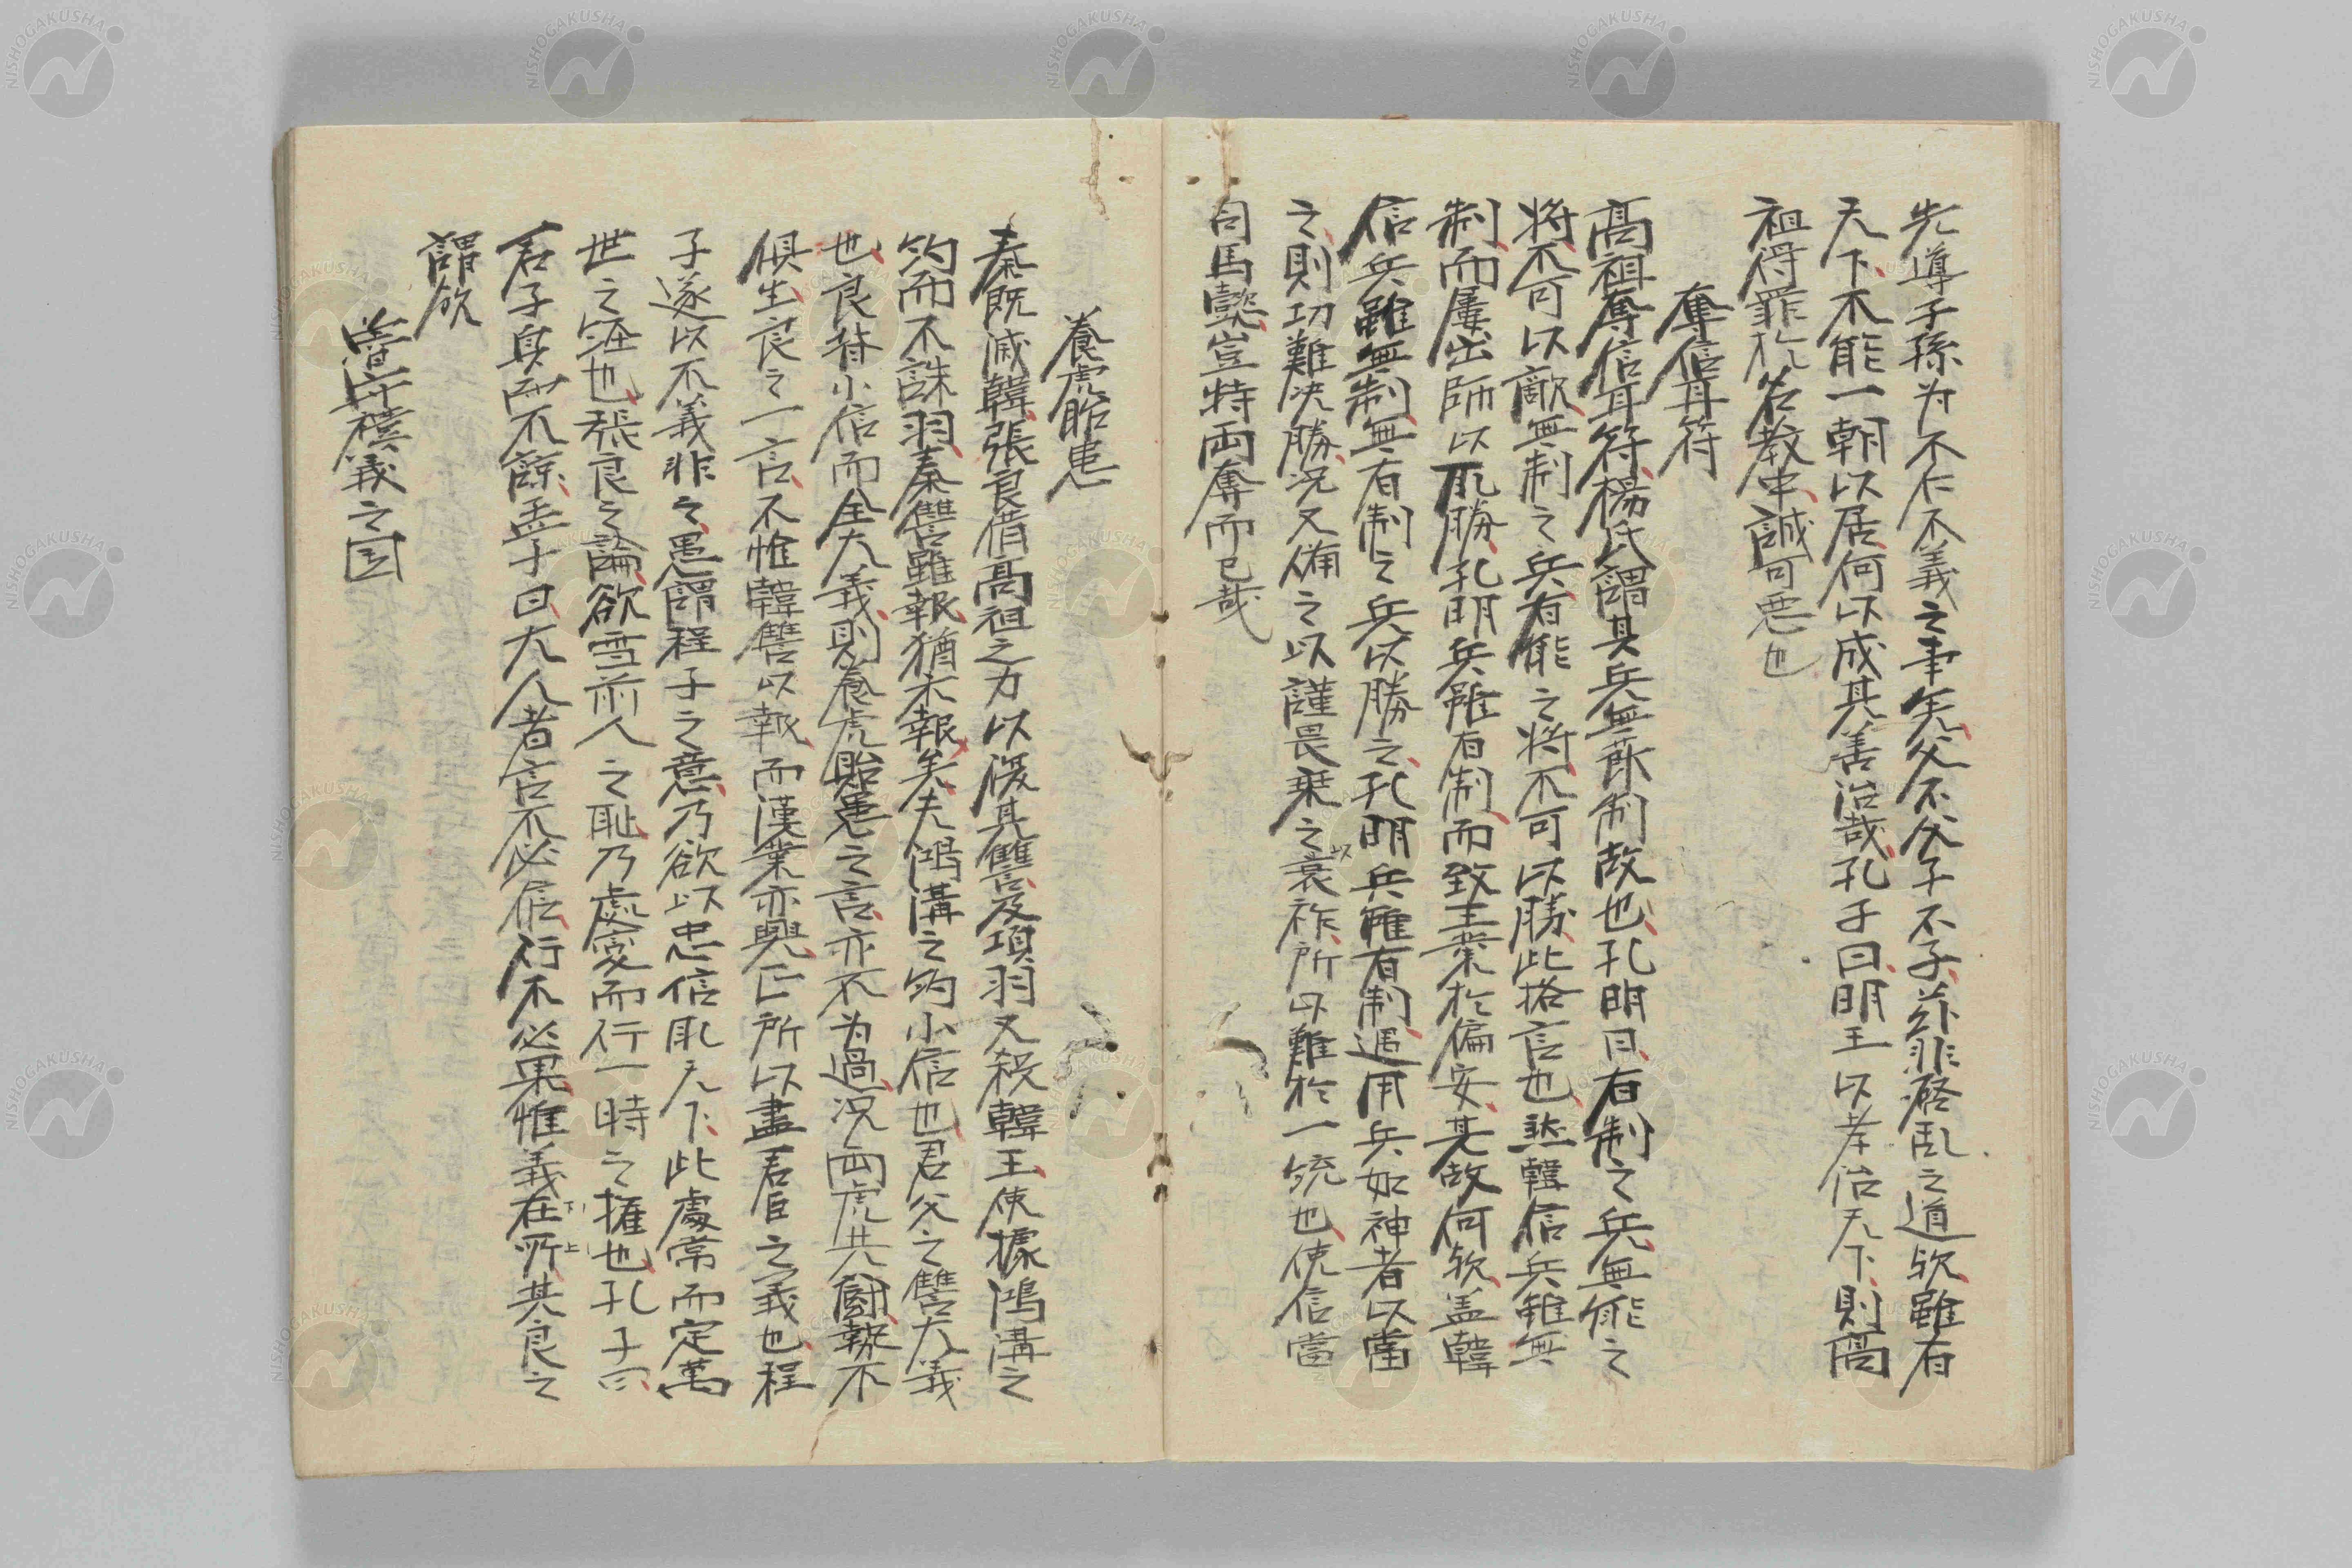 先導子孫为不仁不義之事矣父不父子不子茲非啓乱之道欤雖有
天下不能一朝以居何以成其善治哉孔子曰明王以孝治天下則高
祖得罪於名教中誠可悪也
奪信耳符
高祖奪信耳符楊氏謂其兵無節制故也孔明曰有制之兵無能之
将不可以敵無制之兵有能之将不可以勝此格言也然韓信兵雖無
制而屢出師以取勝孔明兵雖有制而致王業於偏安其故何欤盖韓
信兵雖無制無有制之兵以勝之孔明兵雖有制遇用兵如神者以當
之則功難决勝况又備之以謹畏乗之以衰祚所以難於一統也使信當
司馬懿豈特両奪而已哉
養虎貽患
秦既滅韓張良借高祖之力以復其讐及項羽又殺韓王使據鴻溝之
約而不誅羽秦讐雖報猶不報矣夫鴻溝之約小信也君父之讐大義
也良背小信而全大義則養虎貽患之言亦不为過况両虎共鬪勢不
俱生良之一言不惟韓讐以報而漢業亦興正所以盡君臣之義也程
子遂以不義非之愚謂程子之意乃欲以忠信取天下此處常而定萬
世之経也張良之論欲雪前人之恥乃處変而行一時之権也孔子曰
君子貞而不諒孟子曰大人者言不必信行不必果惟義在所其良之
謂欤
魯守禮義之国
NISHOGAKUSHA